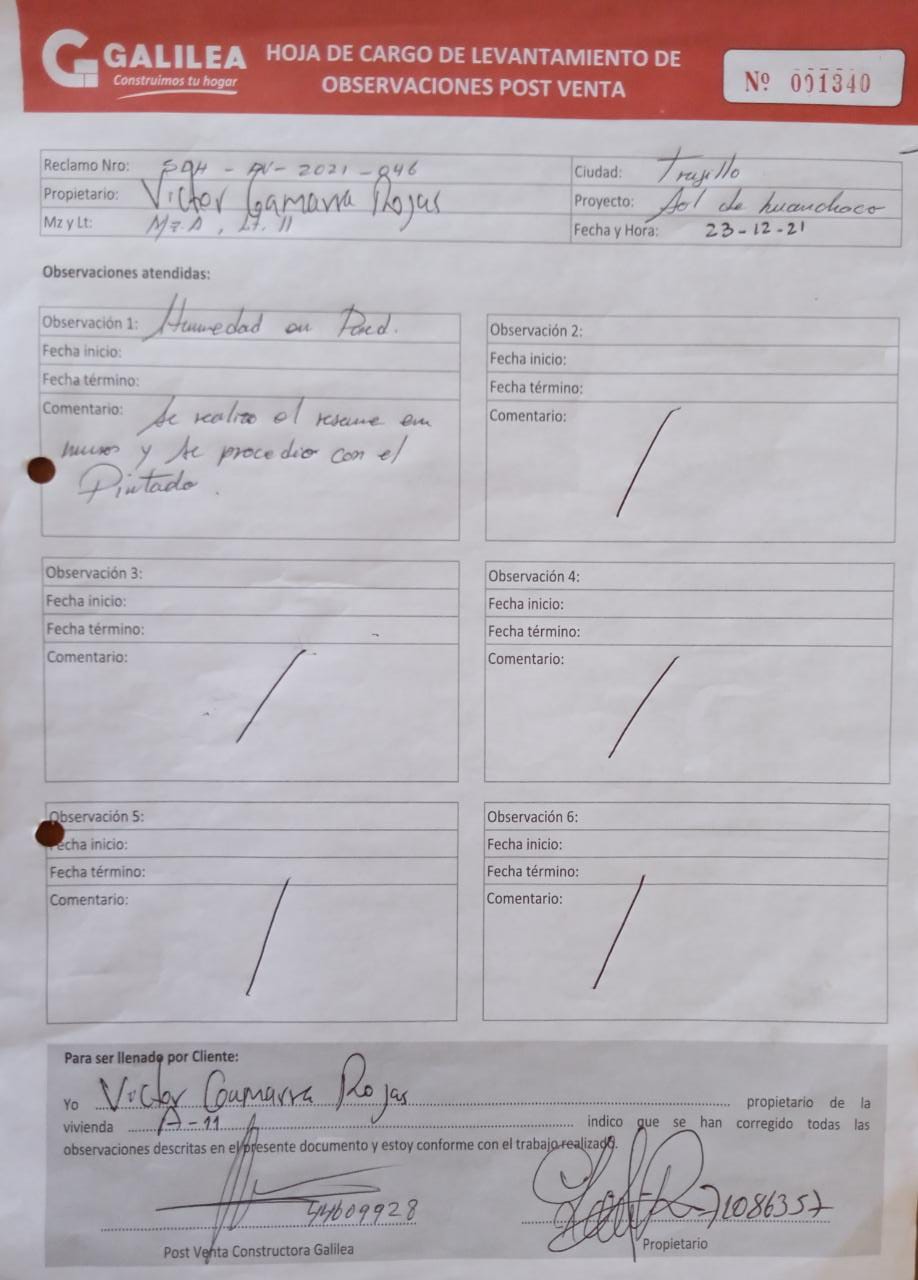 GALILEA
Construimos tu hogar
HOJA DE CARGO DE LEVANTAMIENTO DE
OBSERVACIONES POST VENTA
Nº 001340
Reclamo Nro: SDH - PV - 2021 - 046
Propietario: Victor Gamarra Rojas
Mz y Lt: Mz. A, Lt. 11
Ciudad: Trujillo
Proyecto: Sol de huanchaco
Fecha y Hora: 23-12-21
Observaciones atendidas:
Observación 1: Humedad en Pared.
Fecha inicio:
Fecha término:
Comentario: Se realizo el resane en
muros y se procedio con el
Pintado.
Observación 2:
Fecha inicio:
Fecha término:
Comentario:
Observación 3:
Fecha inicio:
Fecha término:
Comentario:
Observación 4:
Fecha inicio:
Fecha término:
Comentario:
Observación 5:
Fecha inicio:
Fecha término:
Comentario:
Observación 6:
Fecha inicio:
Fecha término:
Comentario:
Para ser llenado por Cliente:
Yo Victor Gamarra Rojas propietario de la
vivienda A-11 indico que se han corregido todas las
observaciones descritas en el presente documento y estoy conforme con el trabajo realizado.
44609928
Post Venta Constructora Galilea
71086357
Propietario